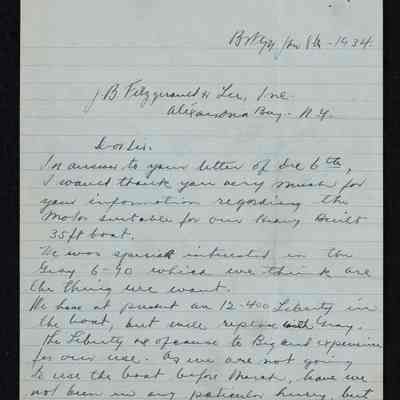 Bklyn Jan 8th - 1934.
J B Fitzgerald & Lee, Inc.
Alexandria Bay - N.Y.
Dr Sir.
In answer to your letter of Dec 6th,
I want thank you very much for
your information regarding the
Motor suitable for our Heavy Built
35ft boat.
We was special intrested in the
Gray 6-90 which we think are
the thing we want.
We have at present an 12-400 Liberty in
the boat, but will replace with Gray.
the Liberty is of cause to Big and expensive
for our use. As we are not going
to use the boat before March, have we
not been in any particular hurry, but